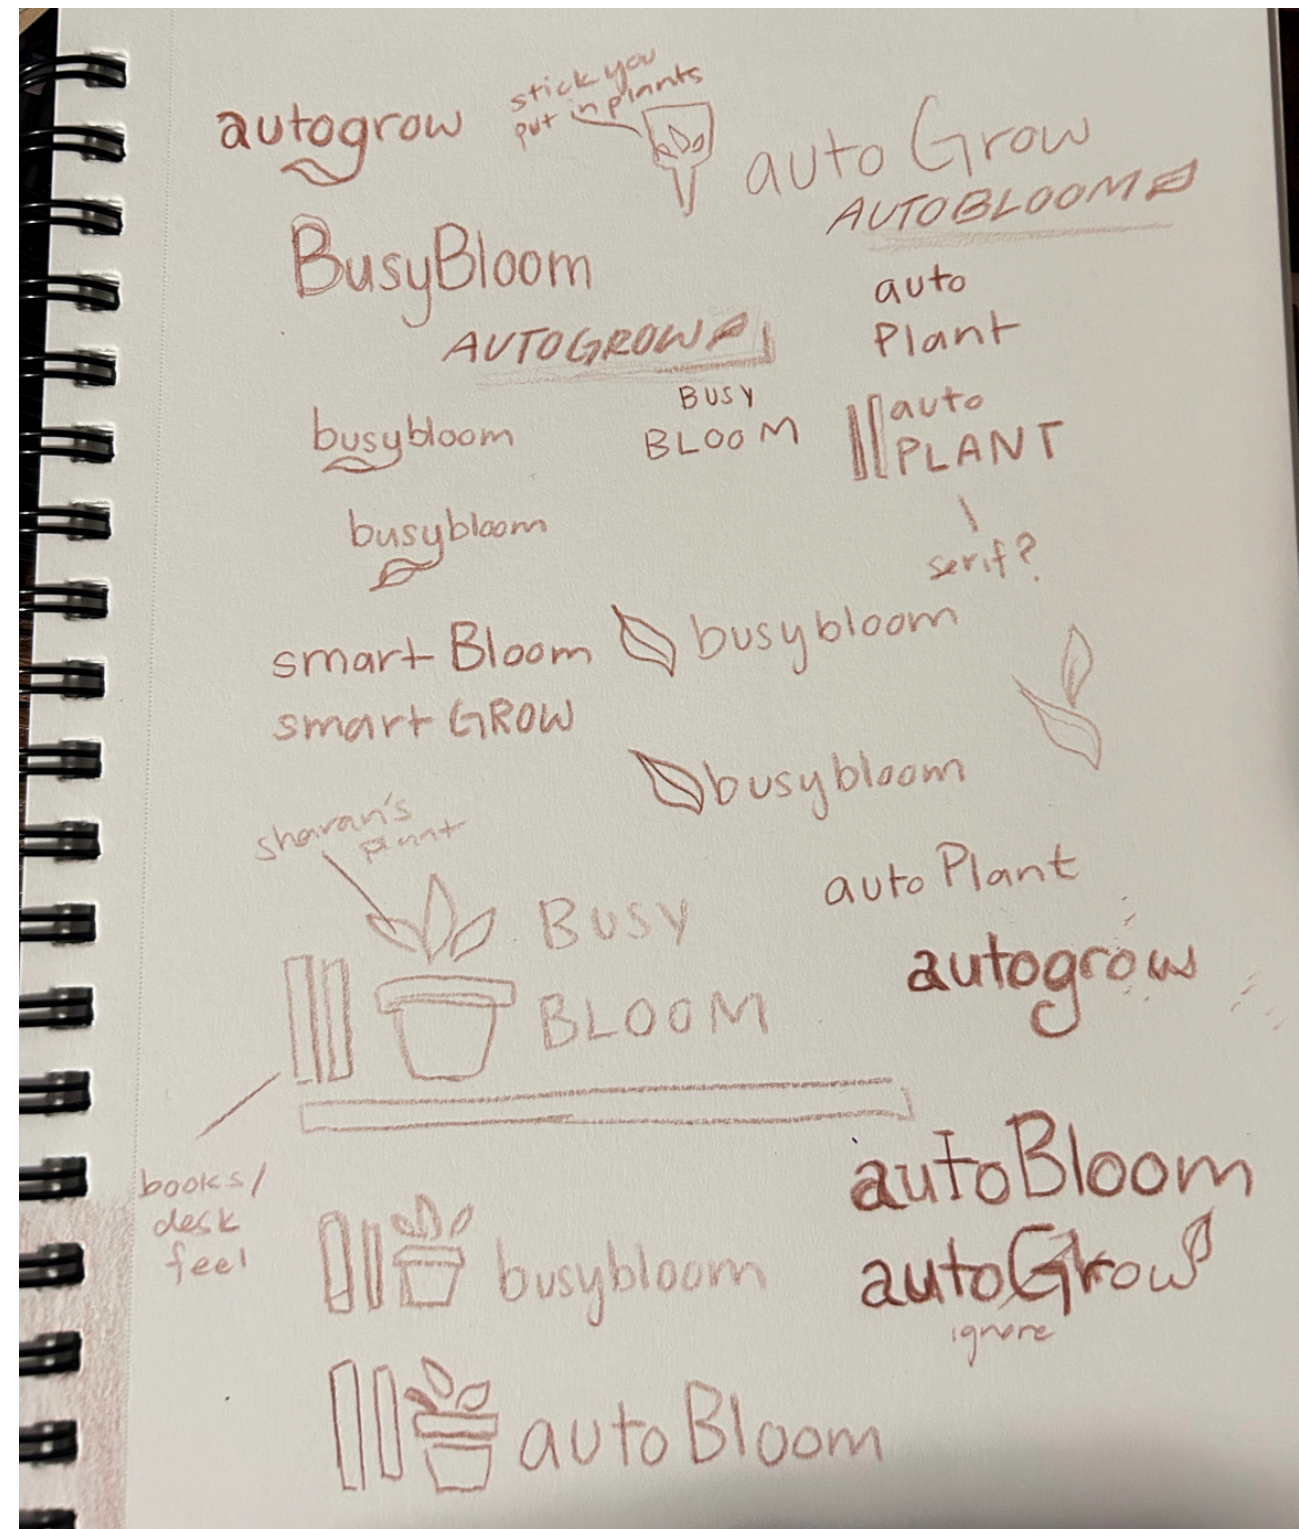 autogrow
stick you
put in plants
auto Grow
AUTOBLOOM
BusyBloom
auto
Plant
AUTOGROW
BUSY
BLOOM
auto
PLANT
serif?
busybloom
busybloom
smart Bloom
busybloom
smart GROW
busybloom
sharan's
plant
auto Plant
BUSY
BLOOM
autogrow
books/
desk
feel
autoBloom
busybloom
autoGrow
ignore
autoBloom